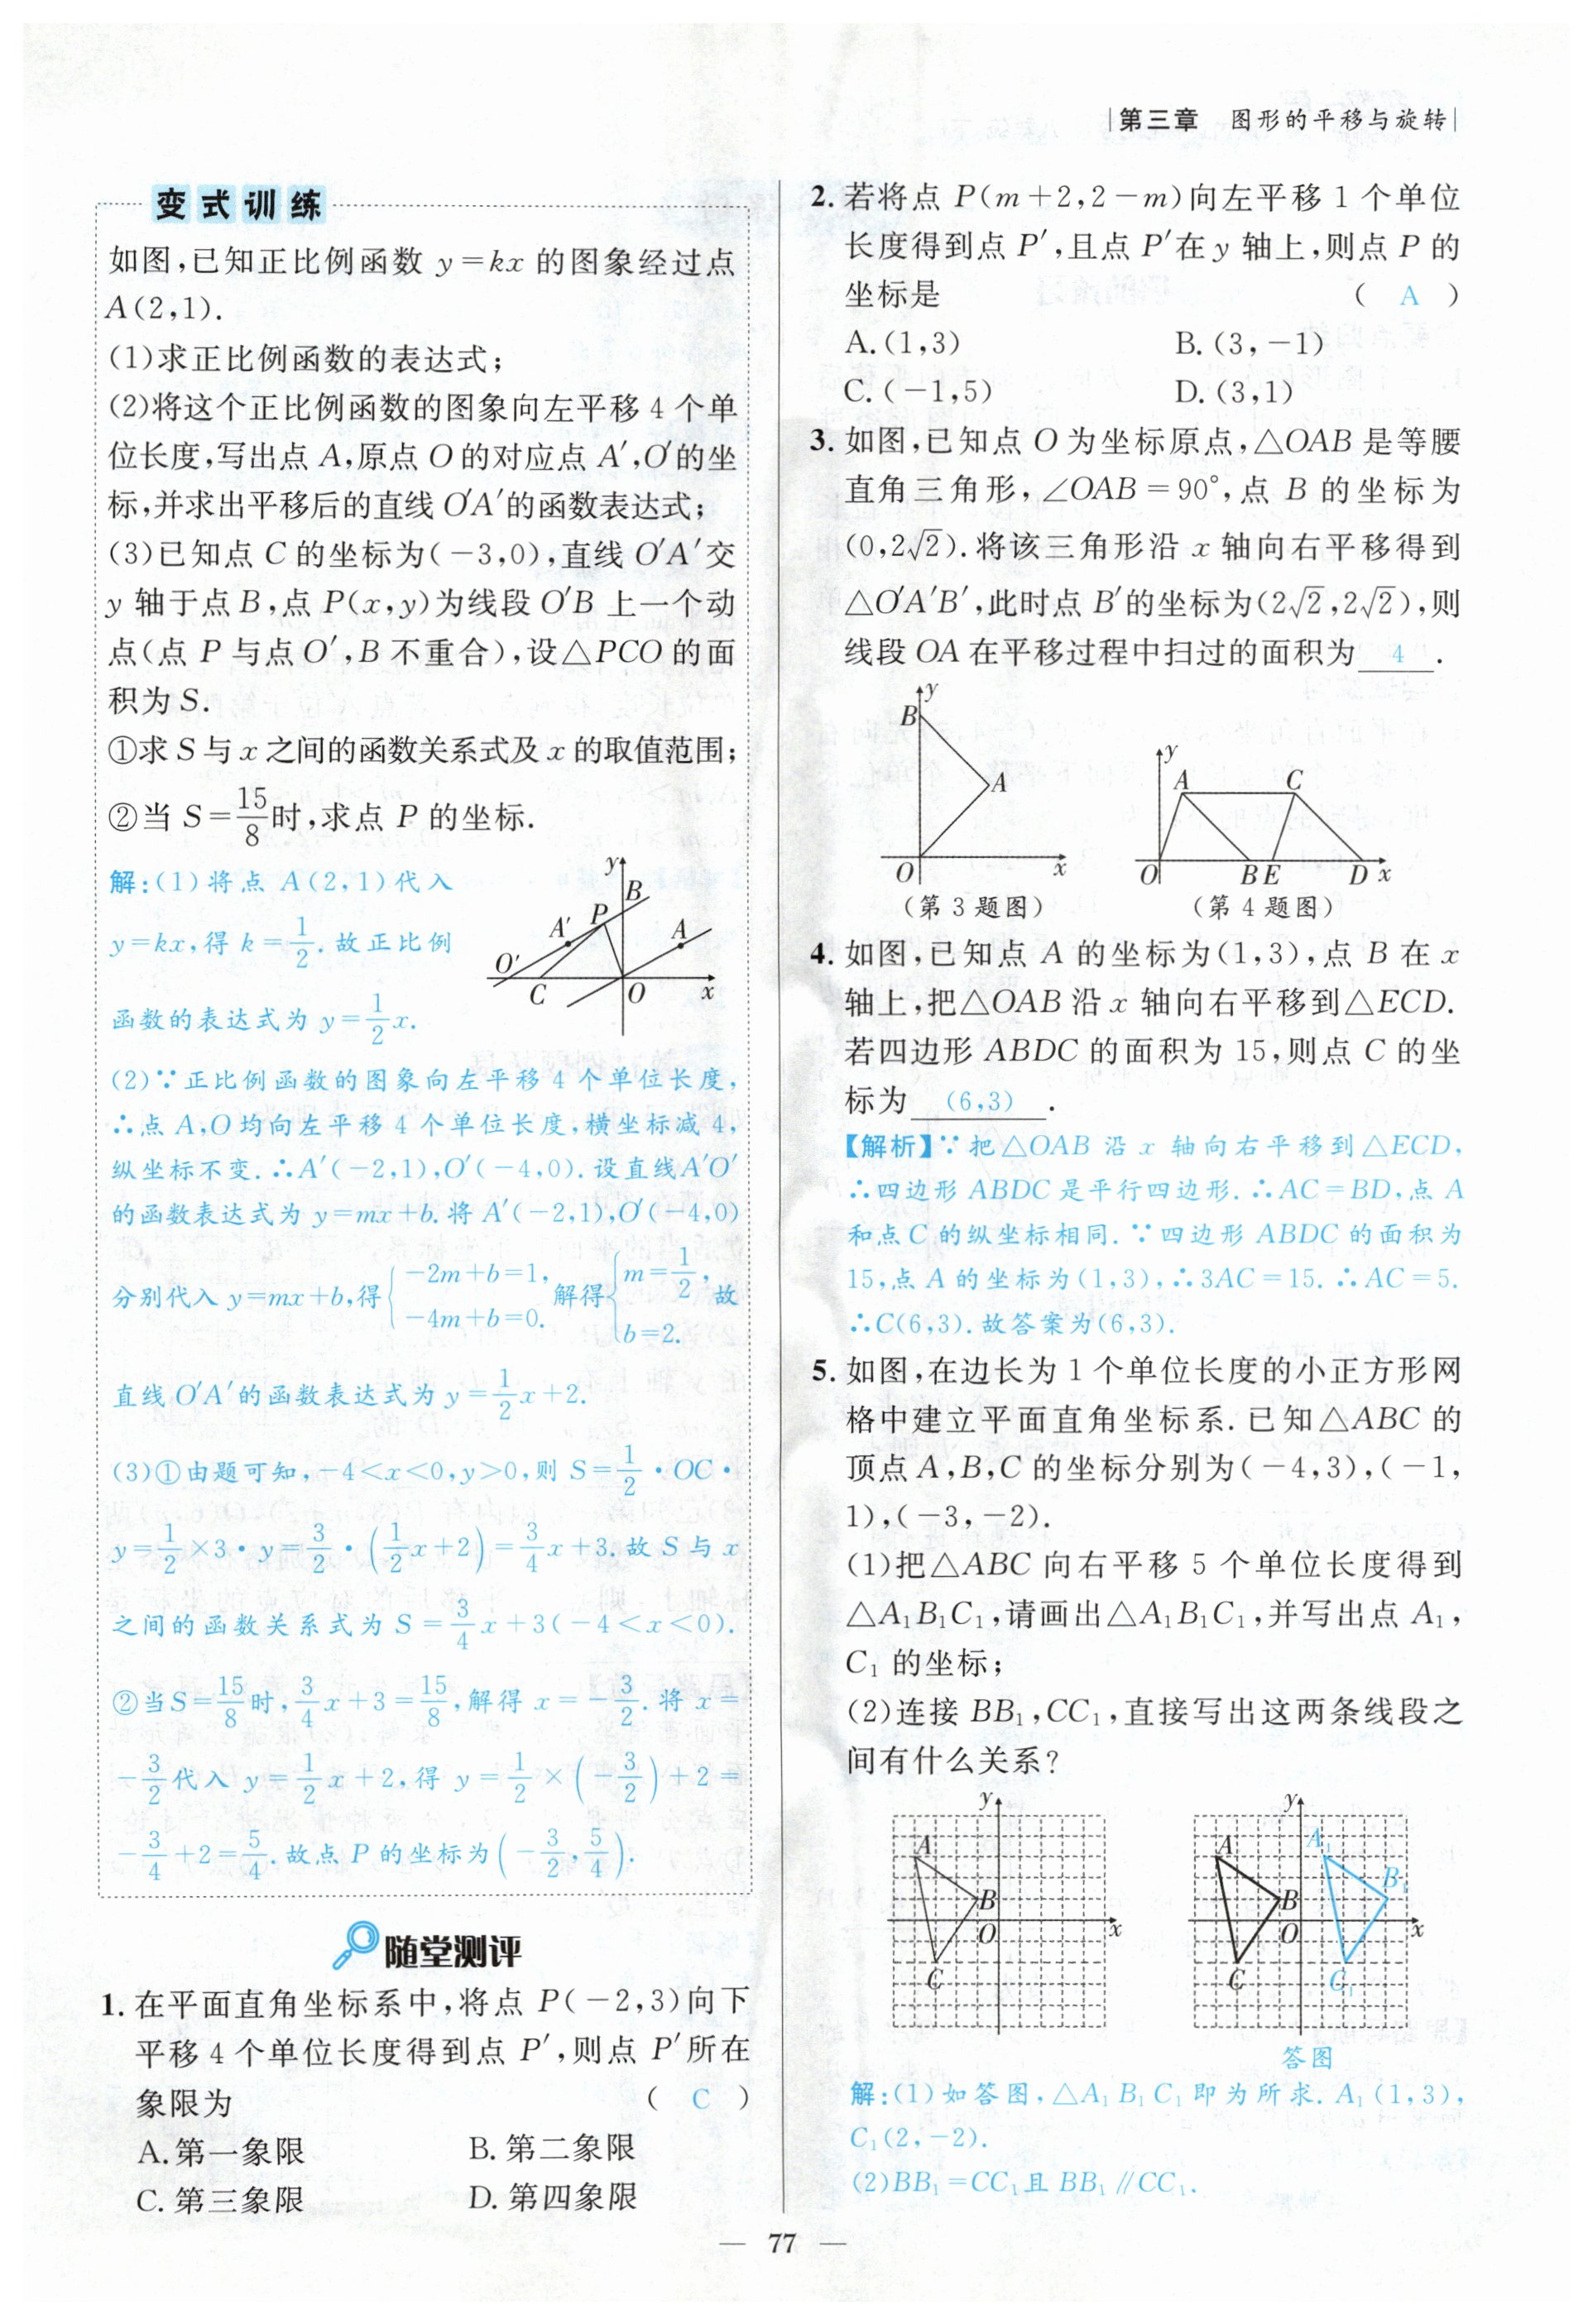 第三章 图形的平移与旋转
变式训练
如图,已知正比例函数 y=kx 的图象经过点
A(2,1).
(1)求正比例函数的表达式;
(2)将这个正比例函数的图象向左平移 4 个单
位长度,写出点 A,原点 O 的对应点 A′,O′的坐
标,并求出平移后的直线 O′A′的函数表达式;
(3)已知点 C 的坐标为(-3,0),直线 O′A′交
y 轴于点 B,点 P(x,y)为线段 O′B 上一个动
点(点 P 与点 O′,B 不重合),设△PCO 的面
积为 S.
①求 S 与 x 之间的函数关系式及 x 的取值范围;
②当 S=15/8时,求点 P 的坐标.
解:(1)将点 A(2,1)代入
y=kx,得 k=1/2.故正比例
函数的表达式为 y=1/2x.
y
B
P
A′
A
O′
C
O
x
(2)∵正比例函数的图象向左平移 4 个单位长度,
∴点 A,O 均向左平移 4 个单位长度,横坐标减 4,
纵坐标不变.∴A′(-2,1),O′(-4,0).设直线A′O′
的函数表达式为 y=mx+b.将 A′(-2,1),O′(-4,0)
分别代入 y=mx+b,得{-2m+b=1, -4m+b=0. 解得{m=1/2, b=2. 故
直线 O′A′的函数表达式为 y=1/2x+2.
(3)①由题可知,-4<x<0,y>0,则 S=1/2·OC·
y=1/2×3·y=3/2·(1/2x+2)=3/4x+3.故 S 与 x
之间的函数关系式为 S=3/4x+3(-4<x<0).
②当S=15/8时,3/4x+3=15/8,解得 x=-3/2.将 x=
-3/2代入 y=1/2x+2,得 y=1/2×(-3/2)+2=
-3/4+2=5/4.故点 P 的坐标为(-3/2,5/4).
随堂测评
1. 在平面直角坐标系中,将点 P(-2,3)向下
平移 4 个单位长度得到点 P′,则点 P′所在
象限为 ( C )
A. 第一象限 B. 第二象限
C. 第三象限 D. 第四象限
2. 若将点 P(m+2,2-m)向左平移 1 个单位
长度得到点 P′,且点 P′在 y 轴上,则点 P 的
坐标是 ( A )
A. (1,3) B. (3,-1)
C. (-1,5) D. (3,1)
3. 如图,已知点 O 为坐标原点,△OAB 是等腰
直角三角形,∠OAB=90°,点 B 的坐标为
(0,2√2).将该三角形沿 x 轴向右平移得到
△O′A′B′,此时点 B′的坐标为(2√2,2√2),则
线段 OA 在平移过程中扫过的面积为 4 .
y
B
A
O
x
(第 3 题图)
y
A
C
O
B
E
D
x
(第 4 题图)
4. 如图,已知点 A 的坐标为(1,3),点 B 在 x
轴上,把△OAB 沿 x 轴向右平移到△ECD.
若四边形 ABDC 的面积为 15,则点 C 的坐
标为 (6,3) .
【解析】∵把△OAB 沿 x 轴向右平移到△ECD,
∴四边形 ABDC 是平行四边形.∴AC=BD,点 A
和点 C 的纵坐标相同.∵四边形 ABDC 的面积为
15,点 A 的坐标为(1,3),∴3AC=15.∴AC=5.
∴C(6,3).故答案为(6,3).
5. 如图,在边长为 1 个单位长度的小正方形网
格中建立平面直角坐标系.已知△ABC 的
顶点 A,B,C 的坐标分别为(-4,3),(-1,
1),(-3,-2).
(1)把△ABC 向右平移 5 个单位长度得到
△A₁B₁C₁,请画出△A₁B₁C₁,并写出点 A₁,
C₁ 的坐标;
(2)连接 BB₁,CC₁,直接写出这两条线段之
间有什么关系?
y
A
B
O
x
C
y
A
A₁
B
B₁
O
x
C
C₁
答图
解:(1)如答图,△A₁B₁C₁即为所求.A₁(1,3),
C₁(2,-2).
(2)BB₁=CC₁且 BB₁∥CC₁.
— 77 —